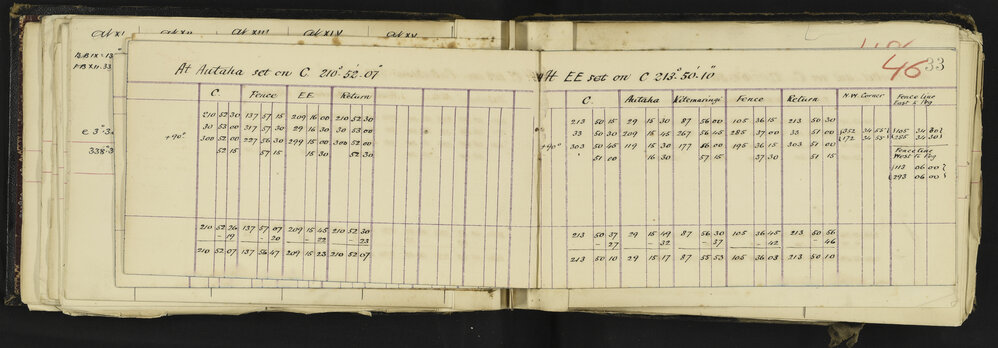 at XI at XII at XIII at XIV at XV
338°.3
At Autaha set on C 210°.52'.07"
C Fence EE Return
210 52 30 137 57 15 209 16 00 210 52 30
30 53 00 317 57 30 29 16 30 30 53 00
+90° 300 52 00 227 56 30 299 15 00 300 52 00
52 15 57 15 15 30 52 30
210 52 26 137 57 07 209 15 45 210 52 30
- 19 - 20 - 22 - 23
210 52 07 137 56 47 209 15 23 210 52 07
46 33
At EE set on C 213°.50'.10"
C Autaha Kitemaringi Fence Return N.W. Corner Fence line East to Peg
213 50 30 29 15 30 87 56 00 105 36 15 213 50 30
33 50 30 209 15 45 267 56 45 285 37 00 33 51 00 352 34 55 105 34 30
+90° 303 50 45 119 15 30 177 56 00 195 36 15 303 51 00 172 34 55 285 34 30
51 00 16 30 57 15 37 30 51 15 Fence line West to Peg
113 06 00
293 06 00
213 50 37 29 15 49 87 56 30 105 36 45 213 50 56
- 27 - 32 - 37 - 42 - 46
213 50 10 29 15 17 87 55 53 105 36 03 213 50 10